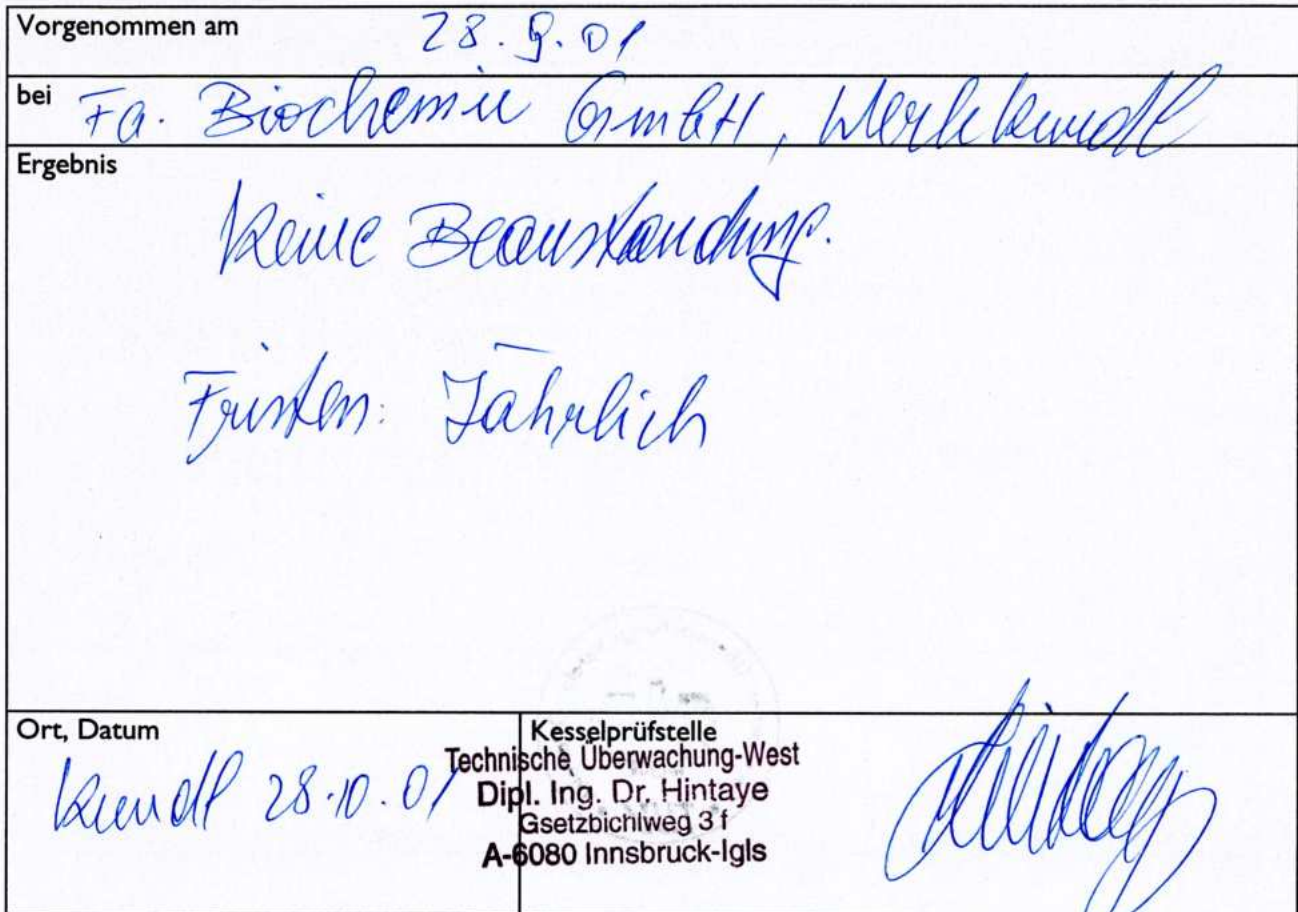 Vorgenommen am 28.9.01
bei Fa. Biochemie GmbH, Werk Kundl
Ergebnis
Keine Beanstandung.
Fristen: Jährlich
Ort, Datum
Kundl 28.10.01
Kesselprüfstelle
Technische Überwachung-West
Dipl. Ing. Dr. Hintaye
Gsetzbichlweg 3 f
A-6080 Innsbruck-Igls